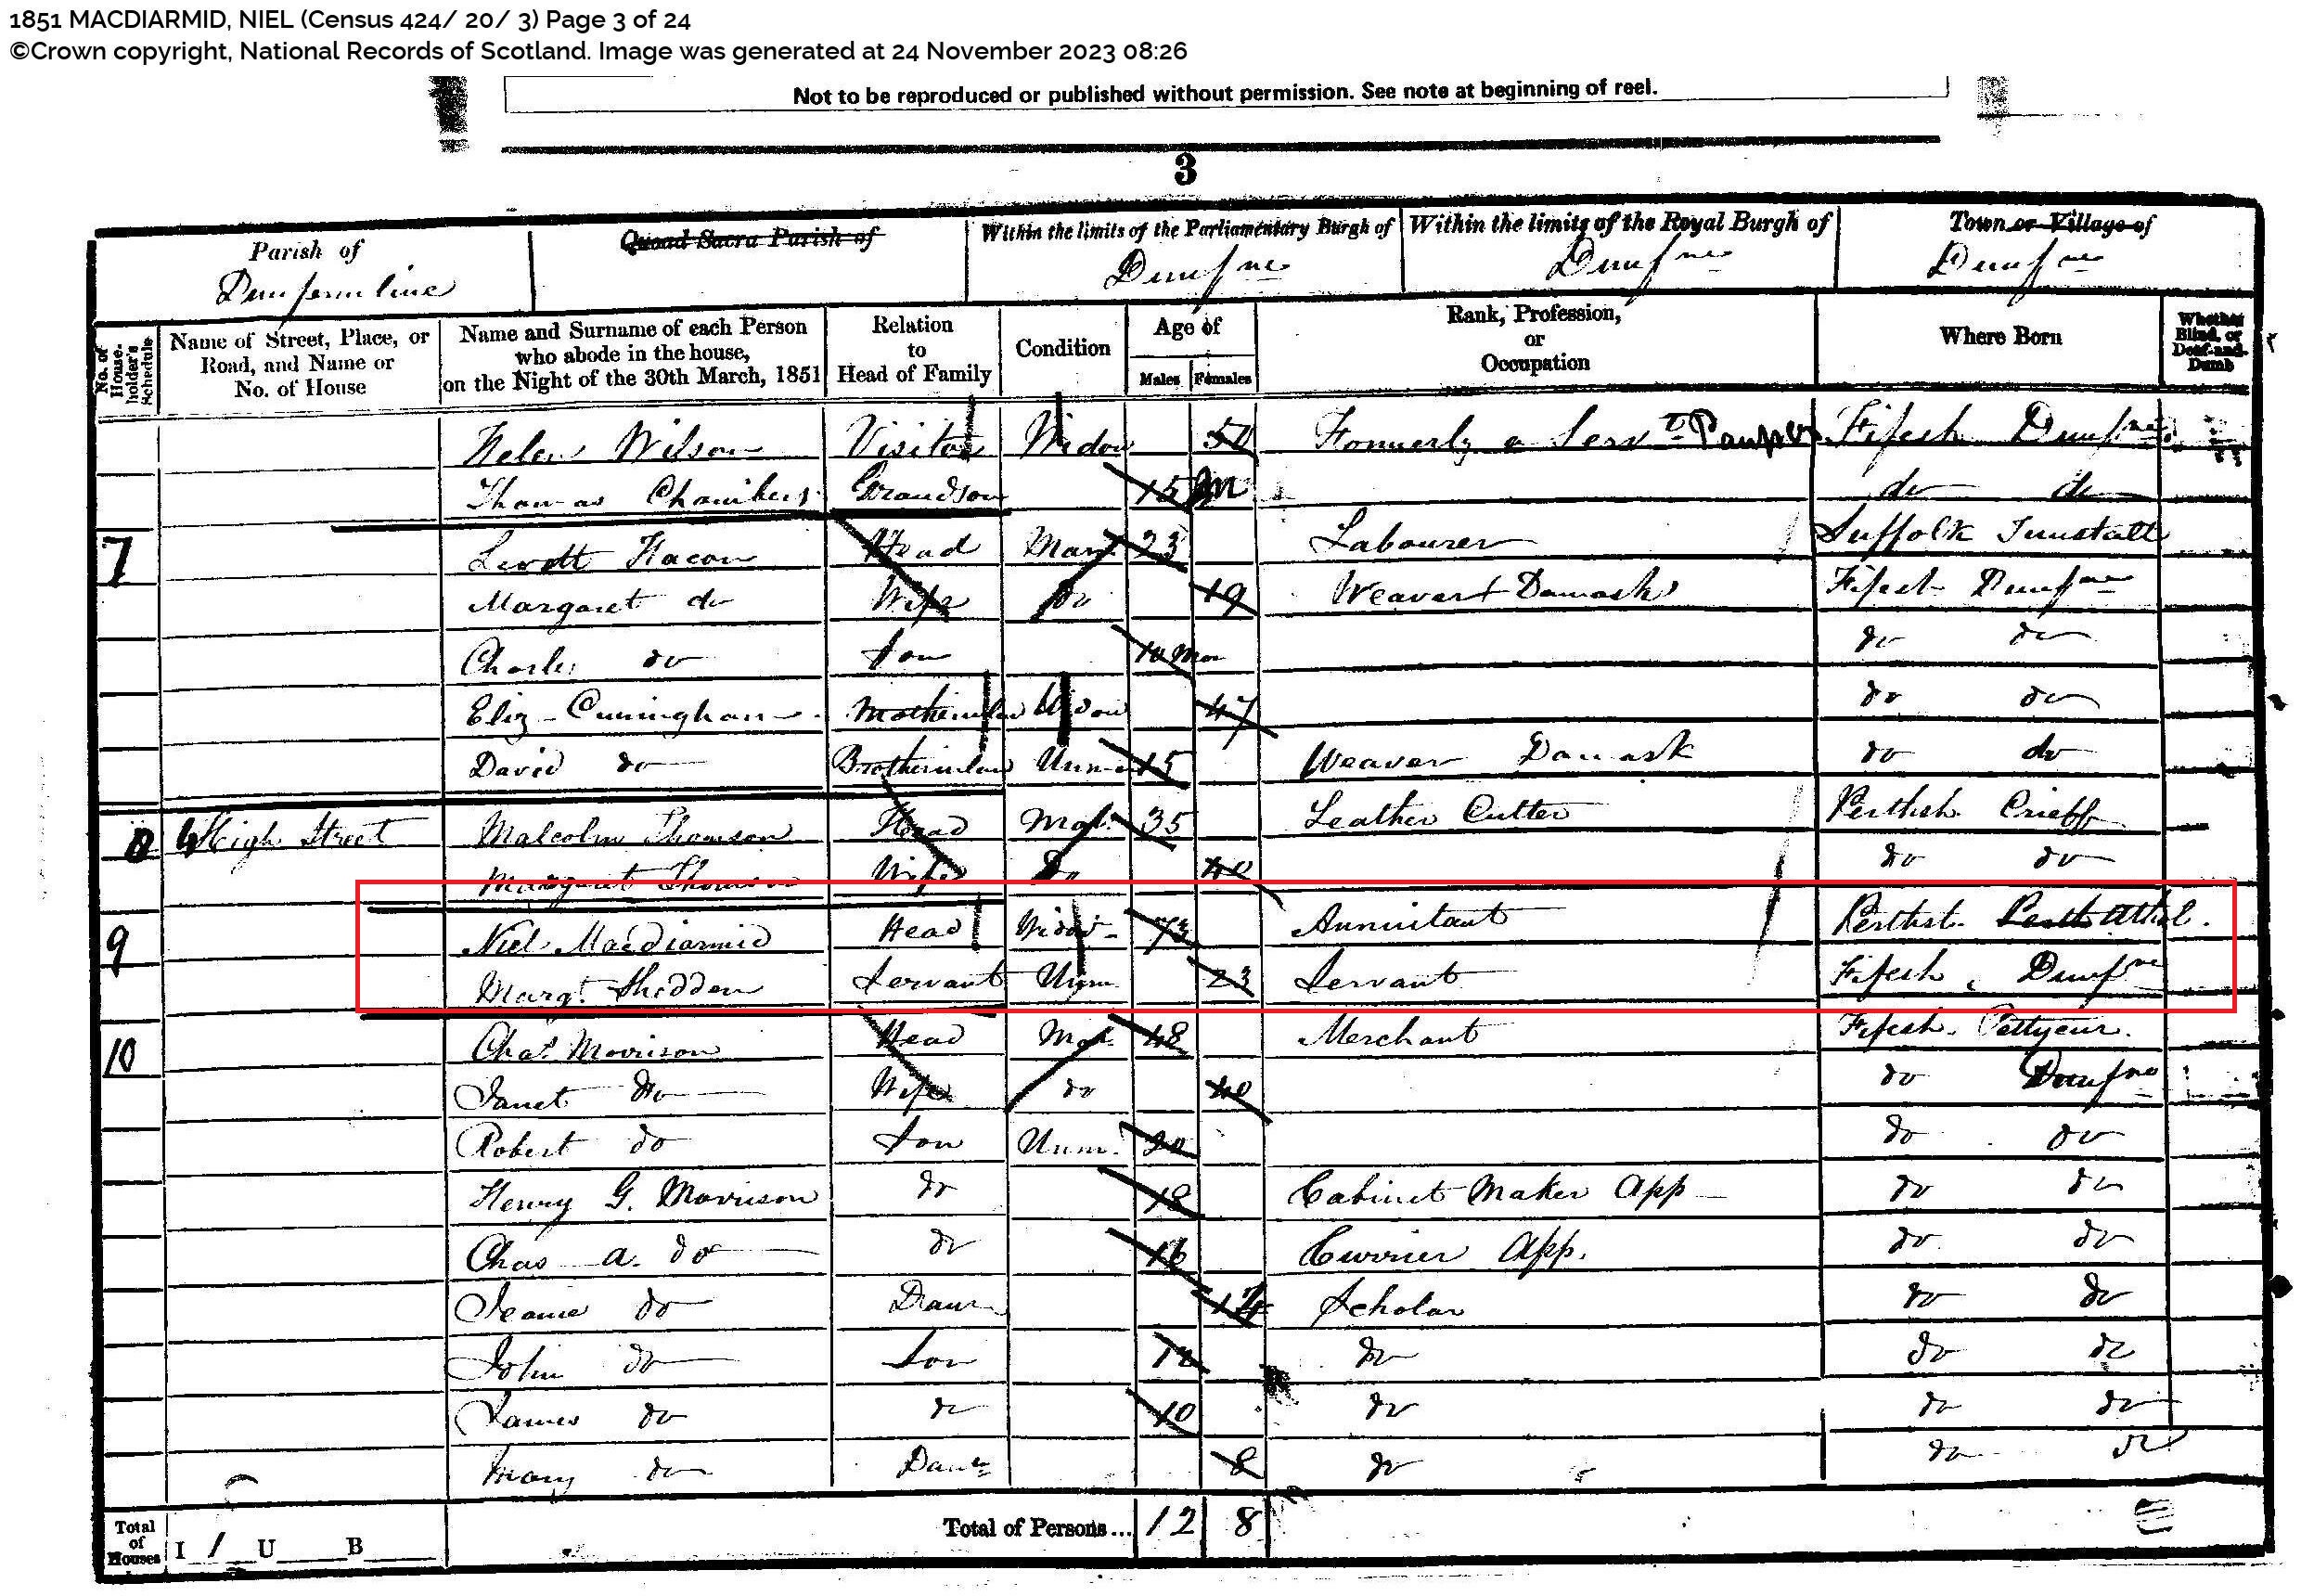 1851 MACDIARMID, NIEL (Census 424/ 20/ 3) Page 3 of 24
©Crown copyright, National Records of Scotland. Image was generated at 24 November 2023 08:26
Not to be reproduced or published without permission. See note at beginning of reel.
3
Parish of Quoad Sacra Parish of Within the limits of the Parliamentary Burgh of Within the limits of the Royal Burgh of Town or Village of
Dunfermline Dunfne Dunfne Dunfne
No. of House-holder's Schedule Name of Street, Place, or Road, and Name or No. of House Name and Surname of each Person who abode in the house, on the Night of the 30th March, 1851 Relation to Head of Family Condition Age of Males Females Rank, Profession, or Occupation Where Born Whether Blind, or Deaf-and-Dumb
Helen Wilson Visitor Widow Formerly a Servt Pauper Fifesh Dunfne
Thomas Chambers Grandson 15 do do
7 Head Mar 23 Labourer Suffolk Tunstall
Margaret do Wife Do 19 Weaver Damask Fifesh Dunfne
Charles do Son 10 Mon do do
Eliz Cuningham Motherinlaw Widow 47 do do
David do Brotherinlaw Unm 15 Weaver Damask do do
8 High Street Malcolm Thomson Head Mar 35 Leather Cutter Perthsh Crieff
Margaret Thomson Wife Do 40 do do
9 Niel Macdiarmid Head Widr 73 Annuitant Perthsh Athol.
Margt. Shedden Servant Unm 23 Servant Fifesh, Dunfne
10 Chas. Morrison Head Mar 48 Merchant Fifesh. Pettycur.
Janet do Wife do 40 do Dunfne
Robert do Son Unm. 20 do do
Henry G. Morrison do 18 Cabinet Maker App do do
Chas A. do do 16 Currier App. do do
Jeanie do Daur 14 Scholar do do
John do Son 12 do do do
James do do 10 do do do
Mary do Daur 8 do do do
Total of Houses I 1 U B Total of Persons... 12 8